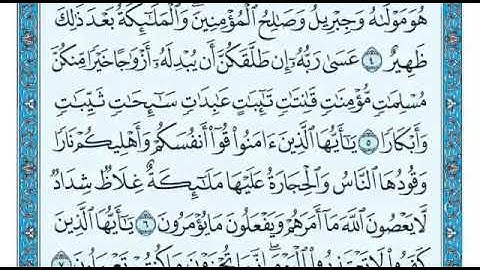 هُوَ مَوْلَىٰهُ وَجِبْرِيلُ وَصَٰلِحُ ٱلْمُؤْمِنِينَ ۖ وَٱلْمَلَٰٓئِكَةُ بَعْدَ ذَٰلِكَ
ظَهِيرٌ ٤ عَسَىٰ رَبُّهُۥٓ إِن طَلَّقَكُنَّ أَن يُبْدِلَهُۥٓ أَزْوَٰجًا خَيْرًا مِّنكُنَّ
مُسْلِمَٰتٍ مُّؤْمِنَٰتٍ قَٰنِتَٰتٍ تَٰٓئِبَٰتٍ عَٰبِدَٰتٍ سَٰٓئِحَٰتٍ ثَيِّبَٰتٍ
وَأَبْكَارًا ٥ يَٰٓأَيُّهَا ٱلَّذِينَ ءَامَنُوا۟ قُوٓا۟ أَنفُسَكُمْ وَأَهْلِيكُمْ نَارًا
وَقُودُهَا ٱلنَّاسُ وَٱلْحِجَارَةُ عَلَيْهَا مَلَٰٓئِكَةٌ غِلَاظٌ شِدَادٌ
لَّا يَعْصُونَ ٱللَّهَ مَآ أَمَرَهُمْ وَيَفْعَلُونَ مَا يُؤْمَرُونَ ٦ يَٰٓأَيُّهَا ٱلَّذِينَ
كَفَرُوا۟ لَا تَعْتَذِرُوا۟ ٱلْيَوْمَ ۖ إِنَّمَا تُجْزَوْنَ مَا كُنتُمْ تَعْمَلُونَ ٧